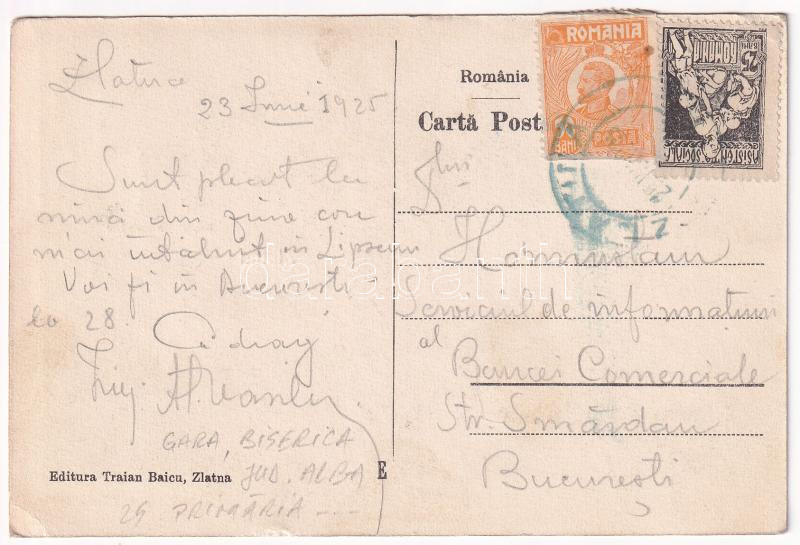 Zlatna
23 Iunie 1925
Sunt plecat la
mină din zine
mai întâlnit în
Voi fi în București
28.
Cu drag
Ing.
GARA, BISERICA
JUD. ALBA
25 PRIMĂRIA ---
Editura Traian Baicu, Zlatna
E
România
Cartă Post
ROMANIA
BANI
POSTA
25
BANI
ROMANIA
ASISTENȚA SOCIALĂ
Serviciul de informațiuni
al
Bancei Comerciale
Str. Smârdan
București
darabanth